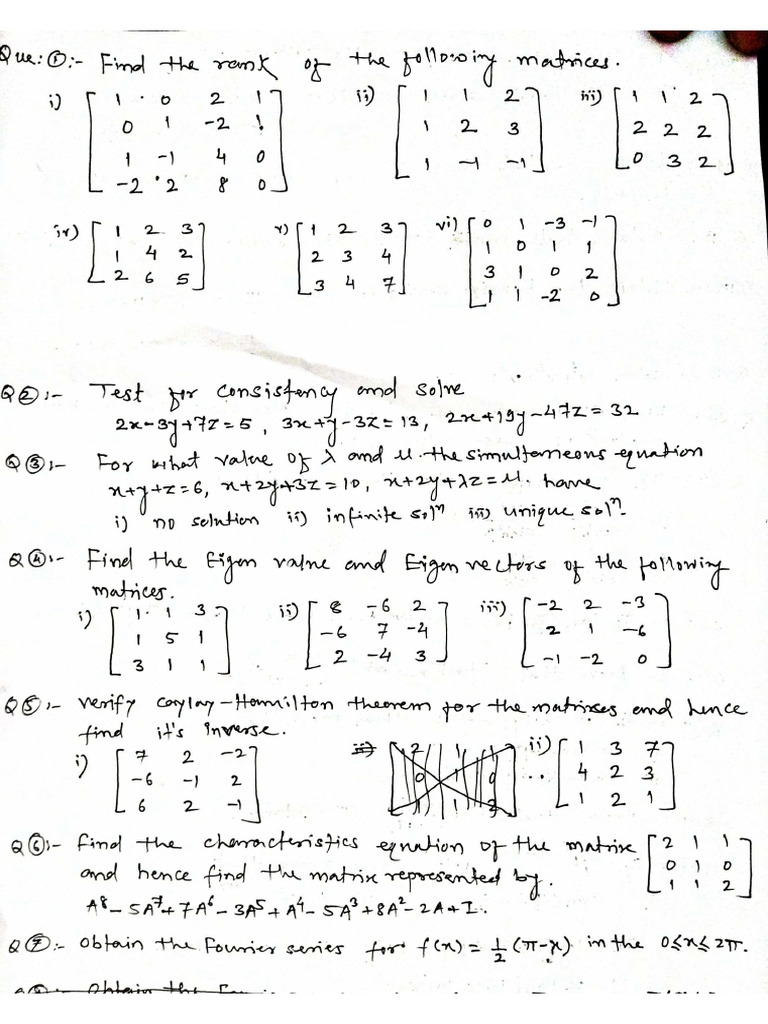 Que: ①:- Find the rank of the following matrices.
i) [1 0 2 1; 0 1 -2 1; 1 -1 4 0; -2 2 8 0] ii) [1 1 2; 1 2 3; 1 -1 -1] iii) [1 1 2; 2 2 2; 0 3 2]
iv) [1 2 3; 1 4 2; 2 6 5] v) [1 2 3; 2 3 4; 3 4 7] vi) [0 1 -3 -1; 1 0 1 1; 3 1 0 2; 1 1 -2 0]
Q②:- Test for consistency and solve
2x-3y+7z=5, 3x+y-3z=13, 2x+19y-47z=32
Q③:- For what value of λ and μ the simultaneous equation
x+y+z=6, x+2y+3z=10, x+2y+λz=μ. have
i) no solution ii) infinite solⁿ iii) unique solⁿ.
Q④:- Find the Eigen value and Eigen vectors of the following
matrices.
i) [1 1 3; 1 5 1; 3 1 1] ii) [8 -6 2; -6 7 -4; 2 -4 3] iii) [-2 2 -3; 2 1 -6; -1 -2 0]
Q⑤:- verify cayley-Hamilton theorem for the matrixses and hence
find it's inverse.
i) [7 2 -2; -6 -1 2; 6 2 -1] ii) [1 3 7; 4 2 3; 1 2 1]
Q⑥:- find the characteristics equation of the matrix [2 1 1; 0 1 0; 1 1 2]
and hence find the matrix represented by.
A⁸-5A⁷+7A⁶-3A⁵+A⁴-5A³+8A²-2A+I.
Q⑦:- obtain the Fourier series for f(x)=1/2(π-x) in the 0≤x≤2π.
obtain the